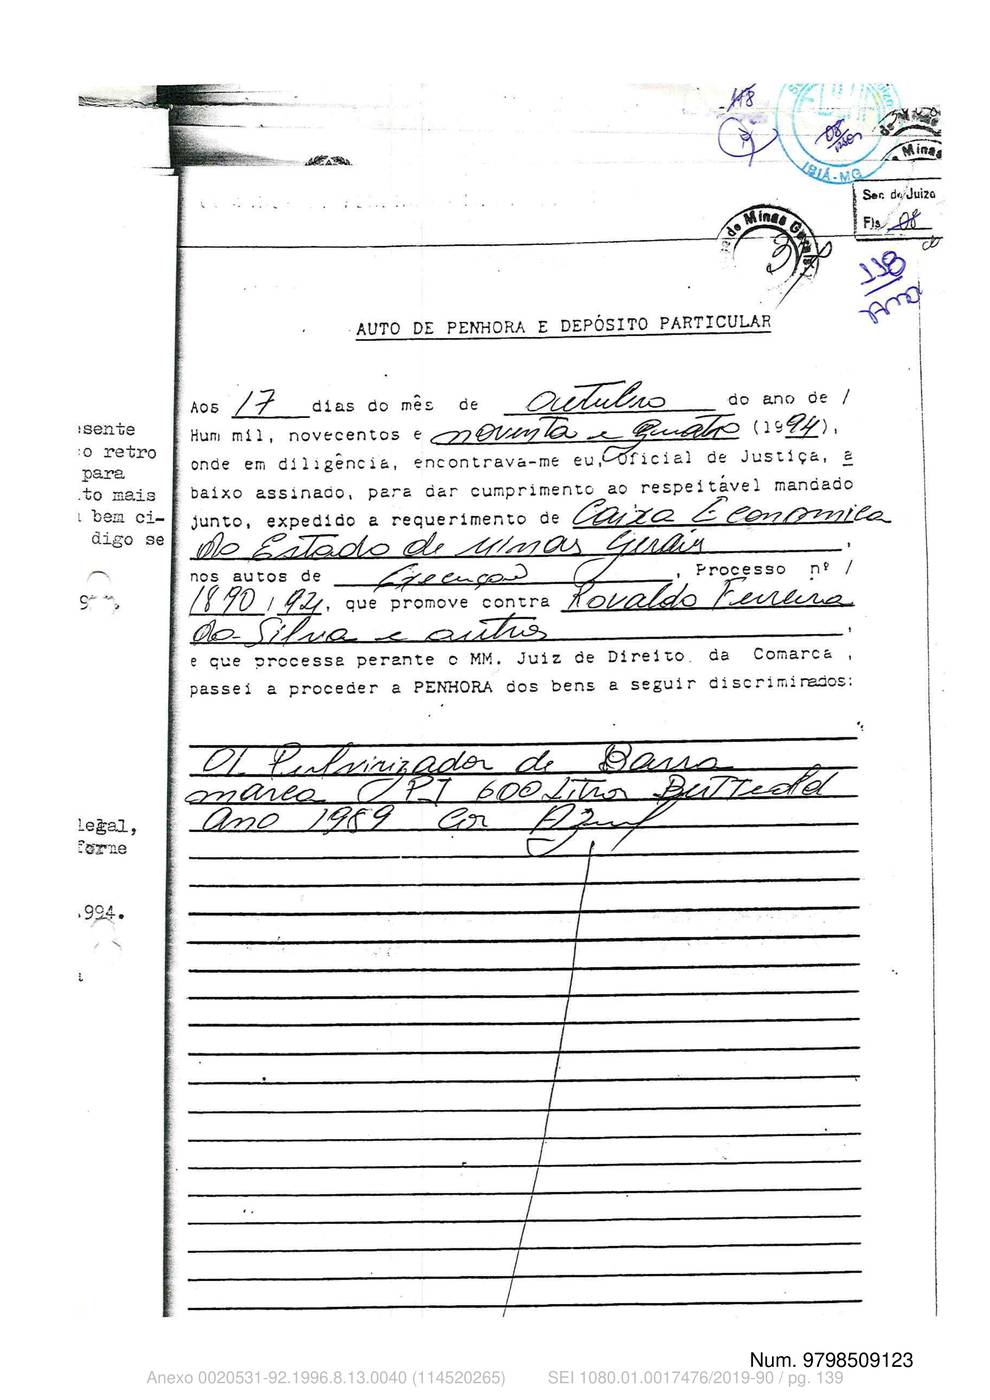 118
08
IBIÁ-MG
de Minas
Minas
Sec. de Juizo
Fls 08
de Minas Gerais
3
118
AUTO DE PENHORA E DEPÓSITO PARTICULAR
Aos 17 dias do mês de outubro do ano de /
Hum mil, novecentos e noventa e quatro (1994),
onde em diligência, encontrava-me eu, Oficial de Justiça, a
baixo assinado, para dar cumprimento ao respeitável mandado
junto, expedido a requerimento de Caixa Economica
do Estado de Minas Gerais,
nos autos de Execução, Processo nº /
1890/94, que promove contra Rovaldo Ferreira
da Silva e outros,
e que processa perante o MM. Juiz de Direito da Comarca,
passei a proceder a PENHORA dos bens a seguir discriminados:
01 Pulvirizador de Barra
marca JPI 600 Litros
Ano 1989 Cor Azul
sente
o retro
para
to mais
bem ci-
digo se
legal,
forne
994.
Num. 9798509123
Anexo 0020531-92.1996.8.13.0040 (114520265) SEI 1080.01.0017476/2019-90 / pg. 139